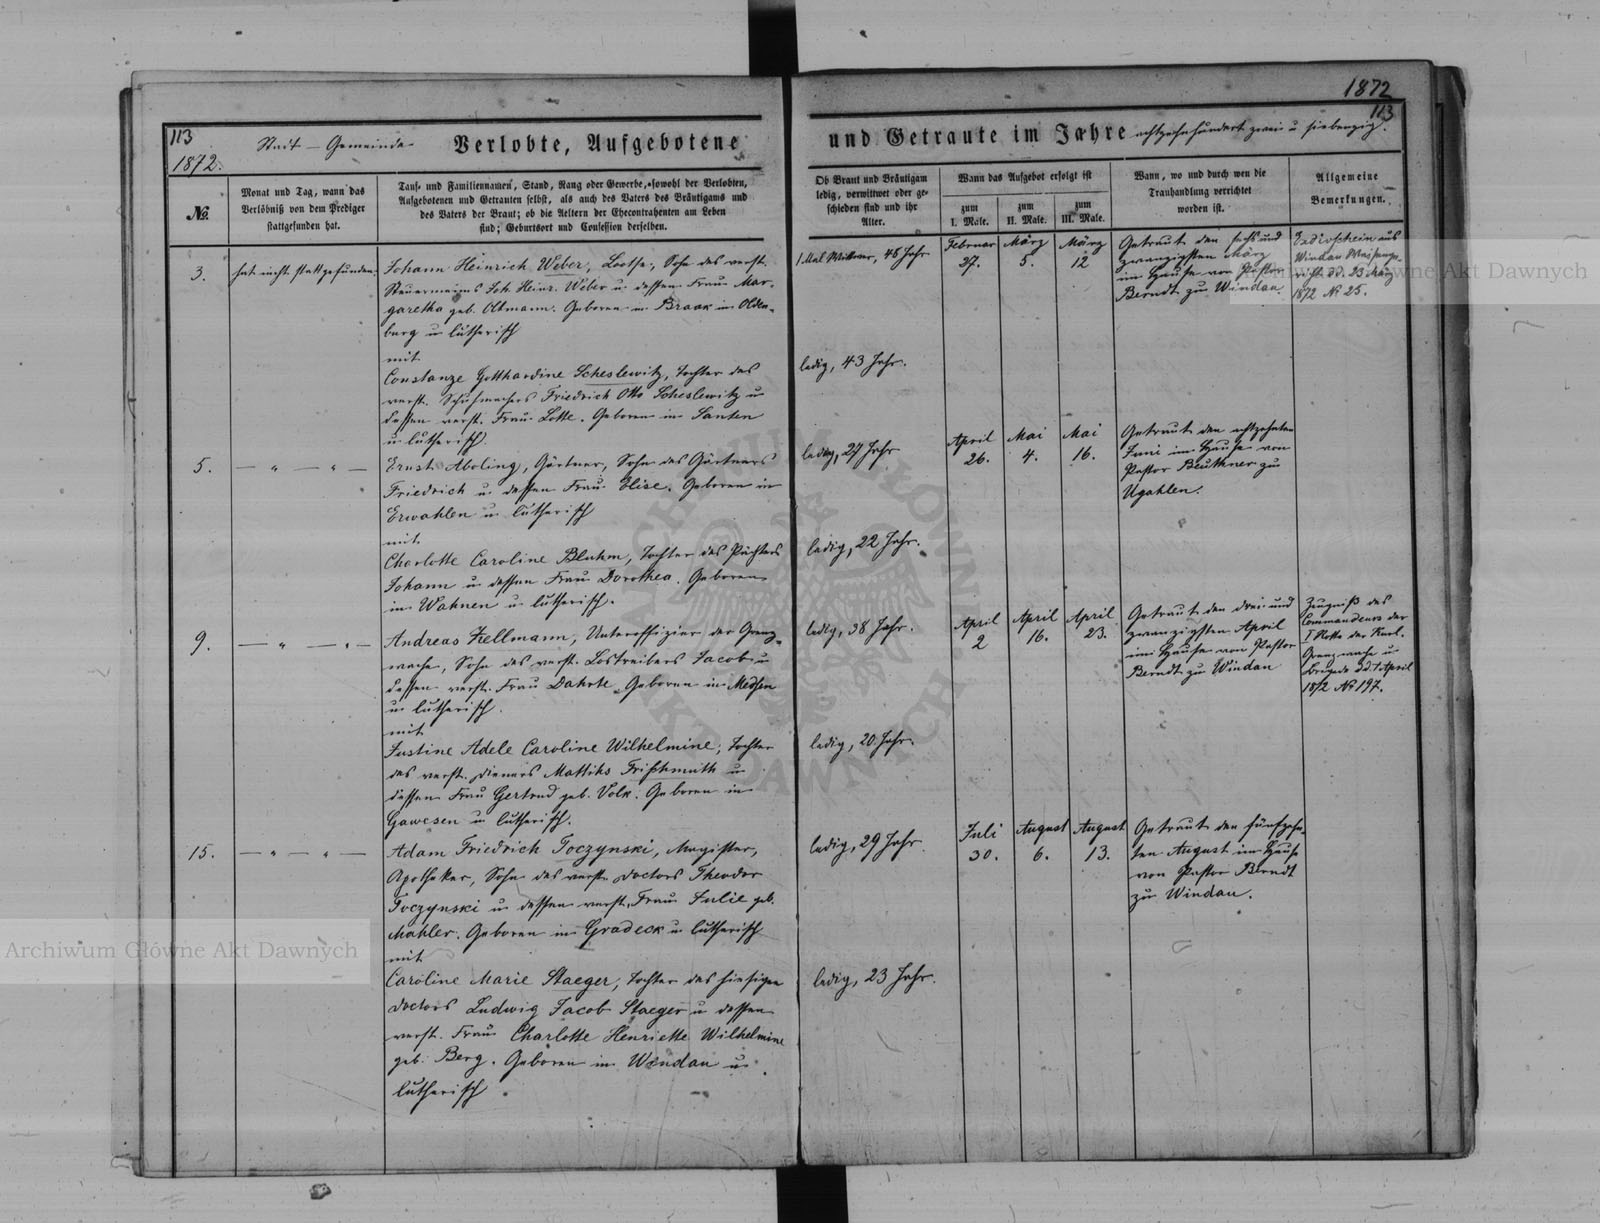 1872
113
113
1872.
Stadt-Gemeinde
Verlobte, Aufgebotene
und Getraute im Jahre achtzehnhundert zwei u siebenzig.
№
Monat und Tag, wann das
Verlöbniß von dem Prediger
stattgefunden hat.
Tauf- und Familiennamen, Stand, Rang oder Gewerbe, sowohl der Verlobten,
Aufgebotenen und Getrauten selbst, als auch des Vaters des Bräutigams und
des Vaters der Braut; ob die Aeltern der Ehecontrahenten am Leben
sind; Geburtsort und Confession derselben.
Ob Braut und Bräutigam
ledig, verwittwet oder ge-
schieden sind und ihr
Alter.
Wann das Aufgebot erfolgt ist
zum
I. Male.
zum
II. Male.
zum
III. Male.
Wann, wo und durch wen die
Trauhandlung verrichtet
worden ist.
Allgemeine
Bemerkungen.
3.
hat nicht stattgefunden.
Johann Heinrich Weber, Lootse, Sohn des verst.
Steuermanns Joh. Heinr. Weber u. dessen Frau Mar-
garetha geb. Oltmann. Geboren in Braak in Olden-
burg u. lutherisch
mit
Constanze Gotthardine Scheslewitz, Tochter des
verst. Schuhmachers Friedrich Otto Scheslewitz u
dessen verst. Frau Lotte. Geboren in Santen
u. lutherisch.
1 Mal Wittwer, 48 Jahr
ledig, 43 Jahr.
Februar
27.
März
5.
März
12
Getraut den sechs und
zwanzigsten März
im Hause von Pastor
Berndt zu Windau.
aus
Windau
d.d. 23 März
1872 № 25.
5.
— " — " —
Ernst Aboling, Gärtner, Sohn des Gärtners
Friedrich u. dessen Frau Elise. Geboren in
Erwahlen u. lutherisch
mit
Charlotte Caroline Bluhm, Tochter des Pächters
Johann u. dessen Frau Dorothea. Geboren
in Wahnen u. lutherisch.
ledig, 27 Jahr
ledig, 22 Jahr.
April
26.
Mai
4.
Mai
16.
Getraut den achtzehnten
Juni im Hause von
Pastor Beuthner zu
Ugahlen.
9.
— " — " —
Andreas Kellmann, Unteroffizier der Grenz-
wache, Sohn des verst. Lostreibers Jacob u
dessen verst. Frau Dahrte. Geboren in Medsen
u. lutherisch.
mit
Justine Adele Caroline Wilhelmine, Tochter
des verst. Dieners Mattihs Frischmuth u
dessen Frau Gertrud geb. Volk. Geboren in
Gawesen u. lutherisch.
ledig, 38 Jahr.
ledig, 20 Jahr.
April
2
April
16.
April
23.
Getraut den drei und
zwanzigsten April
im Hause von Pastor
Berndt zu Windau
Zeugniß des
Commandeurs der
I der Kurl.
Grenzwache
Brigade d.d. 1 April
1872 № 197.
15.
— " — " —
Adam Friedrich Toczynski, Magister,
Apotheker, Sohn des verst. Doctors Theodor
Toczynski u. dessen verst. Frau Julie geb.
Mahler. Geboren in Gradeck u. lutherisch
mit
Caroline Marie Staeger, Tochter des hiesigen
Doctors Ludwig Jacob Staeger u. dessen
verst. Frau Charlotte Henriette Wilhelmine
geb. Berg. Geboren in Windau u.
lutherisch
ledig, 29 Jahr
ledig, 23 Jahr.
Juli
30.
August
6.
August
13.
Getraut den fünfzehn-
ten August im Hause
von Pastor Berndt
zu Windau.
Archiwum Główne Akt Dawnych
Archiwum Główne Akt Dawnych
ARCHIWUM GŁÓWNE AKT DAWNYCH